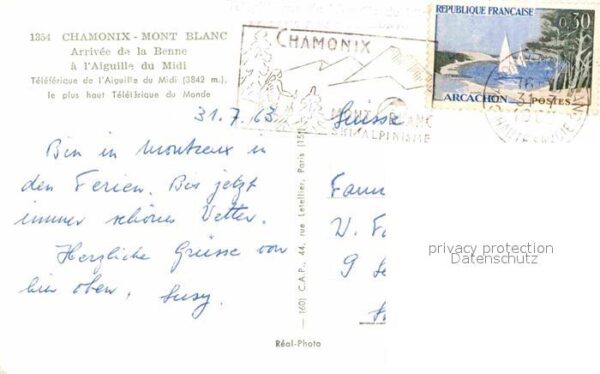 1354 CHAMONIX - MONT BLANC
Arrivée de la Benne
à l'Aiguille du Midi
Téléférique de l'Aiguille du Midi (3842 m.),
le plus haut Téléférique du Monde
CHAMONIX
MONT BLANC
SKI ALPINISME
REPUBLIQUE FRANÇAISE
0,30
ARCACHON POSTES
31.7.63
Suisse
Bin in Montreux in
den Ferien. Bis jetzt
immer schönes Wetter.
Herzliche Grüsse von
hier oben, Susy.
Fam
9
C.A.P., 44, rue Letellier, Paris (15
Réal-Photo
privacy protection
Datenschutz